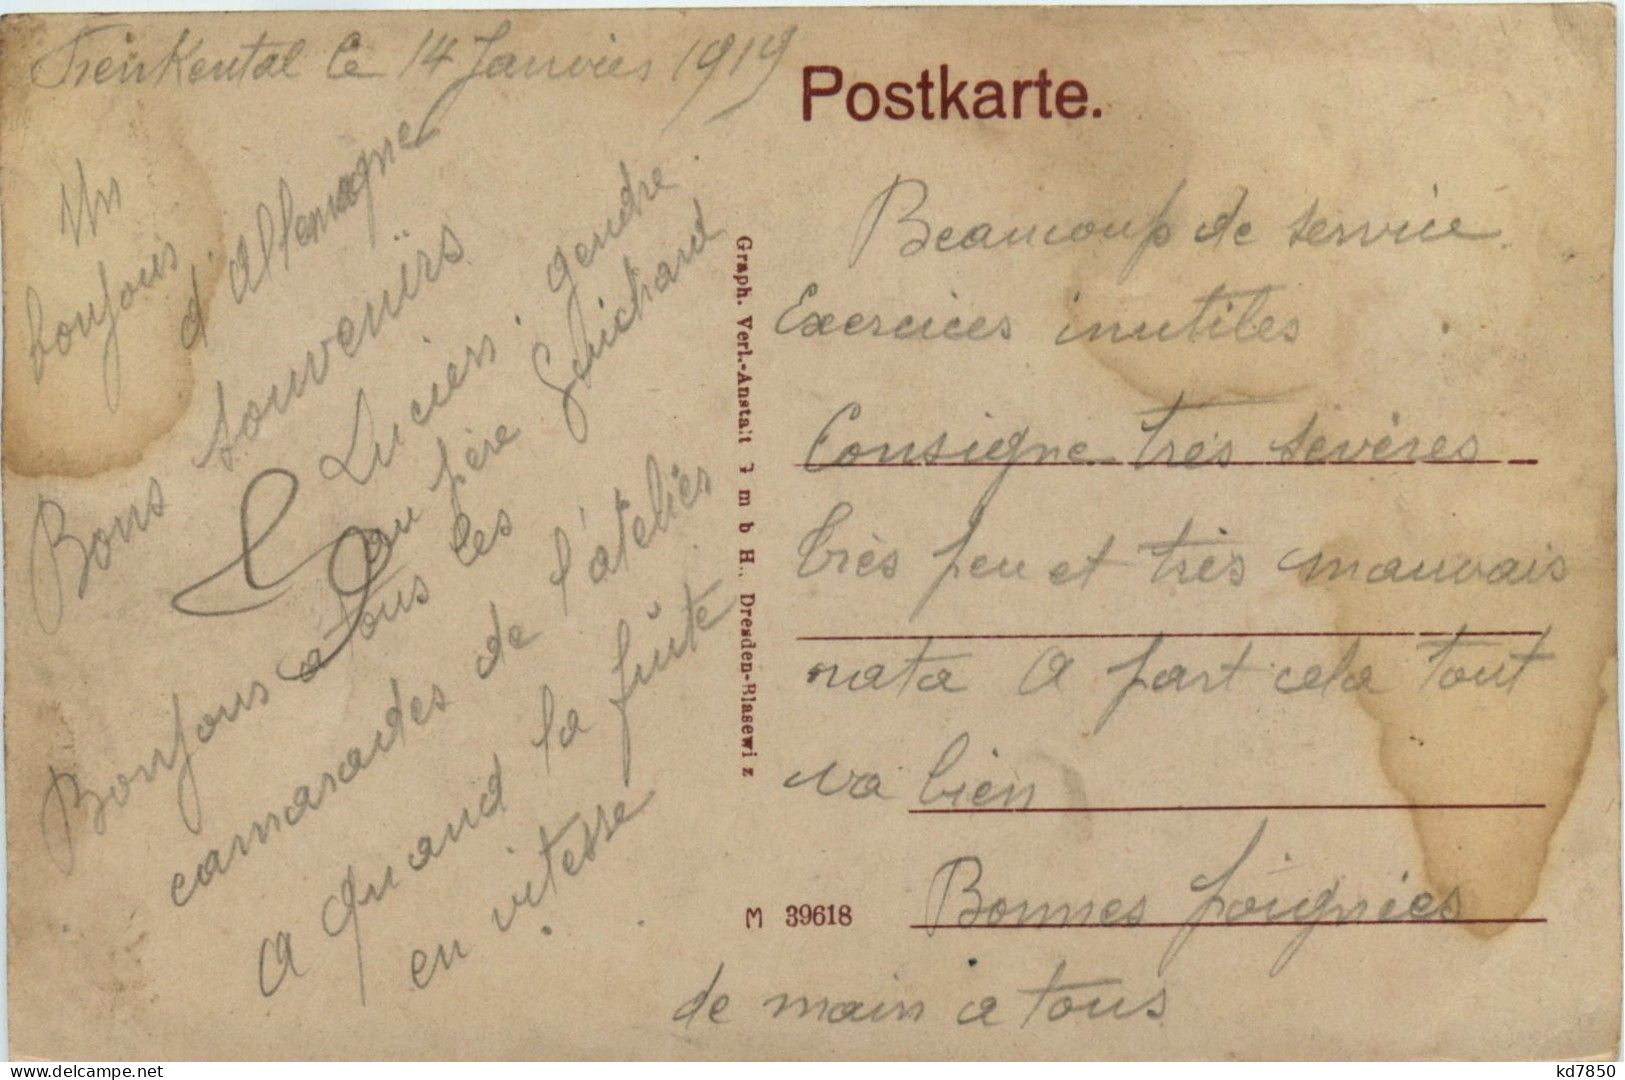 Frenkental le 14 Janvier 1919
Un
bonjour
d'Allemagne
Bons souvenirs
Lucien. gendre
au père Guichard
Bonjour a tous les
camarades de l'atelier
A quand la fuite
en vitesse
Postkarte.
Beaucoup de service
Exercices inutiles
Consigne très sévères
très peu et très mauvais
rata A part cela tout
va bien
Bonnes poignées
de main a tous
Graph. Verl.-Anstalt G m b H., Dresden-Blasewi z
M 39618
kd7850